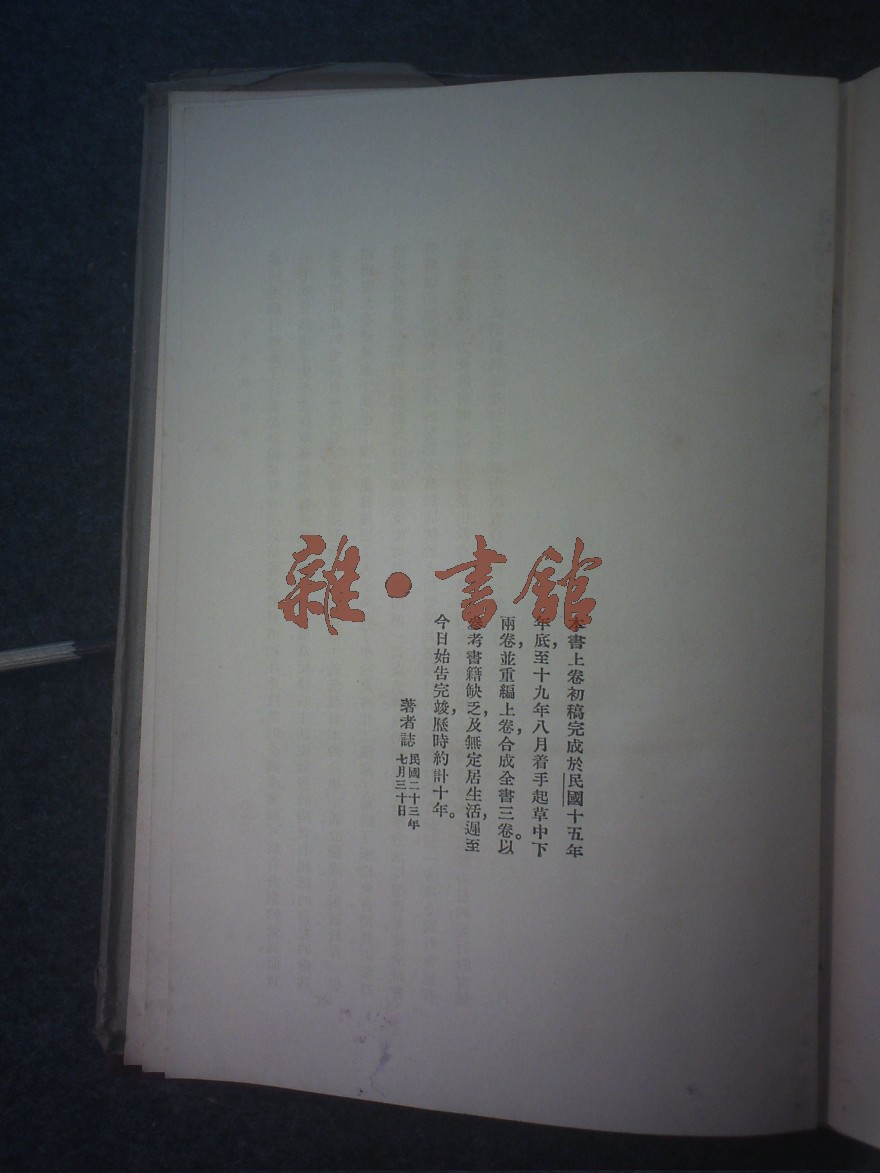 雜·書館
本書上卷初稿完成於民國十五年
年底，至十九年八月着手起草中下
兩卷，並重編上卷，合成全書三卷。以
參考書籍缺乏，及無定居生活，遲至
今日始告完竣，歷時約計十年。
著者誌 民國二十三年
七月三十日